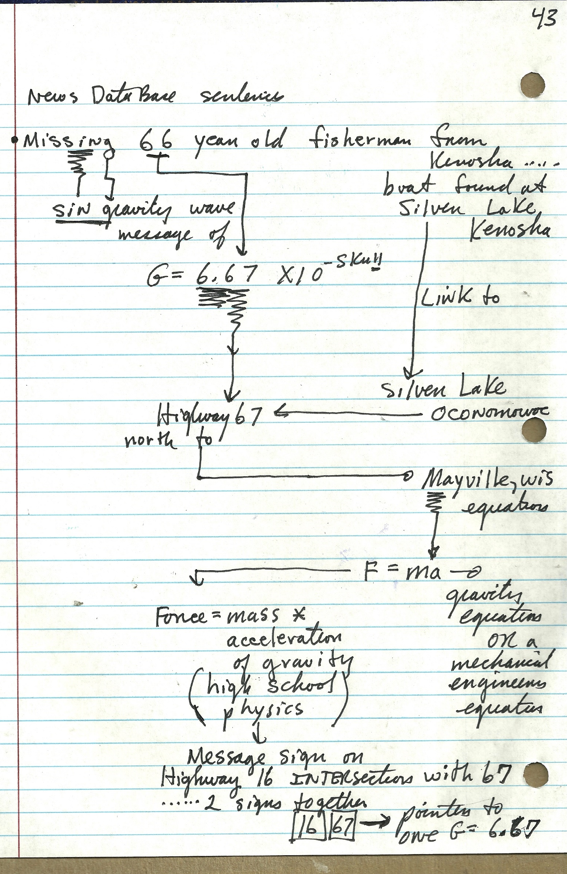 43
News DataBase sentence
Missing 66 year old fisherman from
Kenosha .....
boat found at
Silver Lake,
Kenosha
sin gravity wave
message of
G = 6.67 X10 -skull
Link to
Silver Lake
Oconomowoc
Highway 67
north to
Mayville, wis
equation
F = ma
gravity
equation
or a
mechanical
engineers
equation
Force = mass *
acceleration
of gravity
(high school
physics)
Message sign on
Highway 16 INTERsection with 67
...... 2 signs together
16 67 → pointer to
one G = 6.67